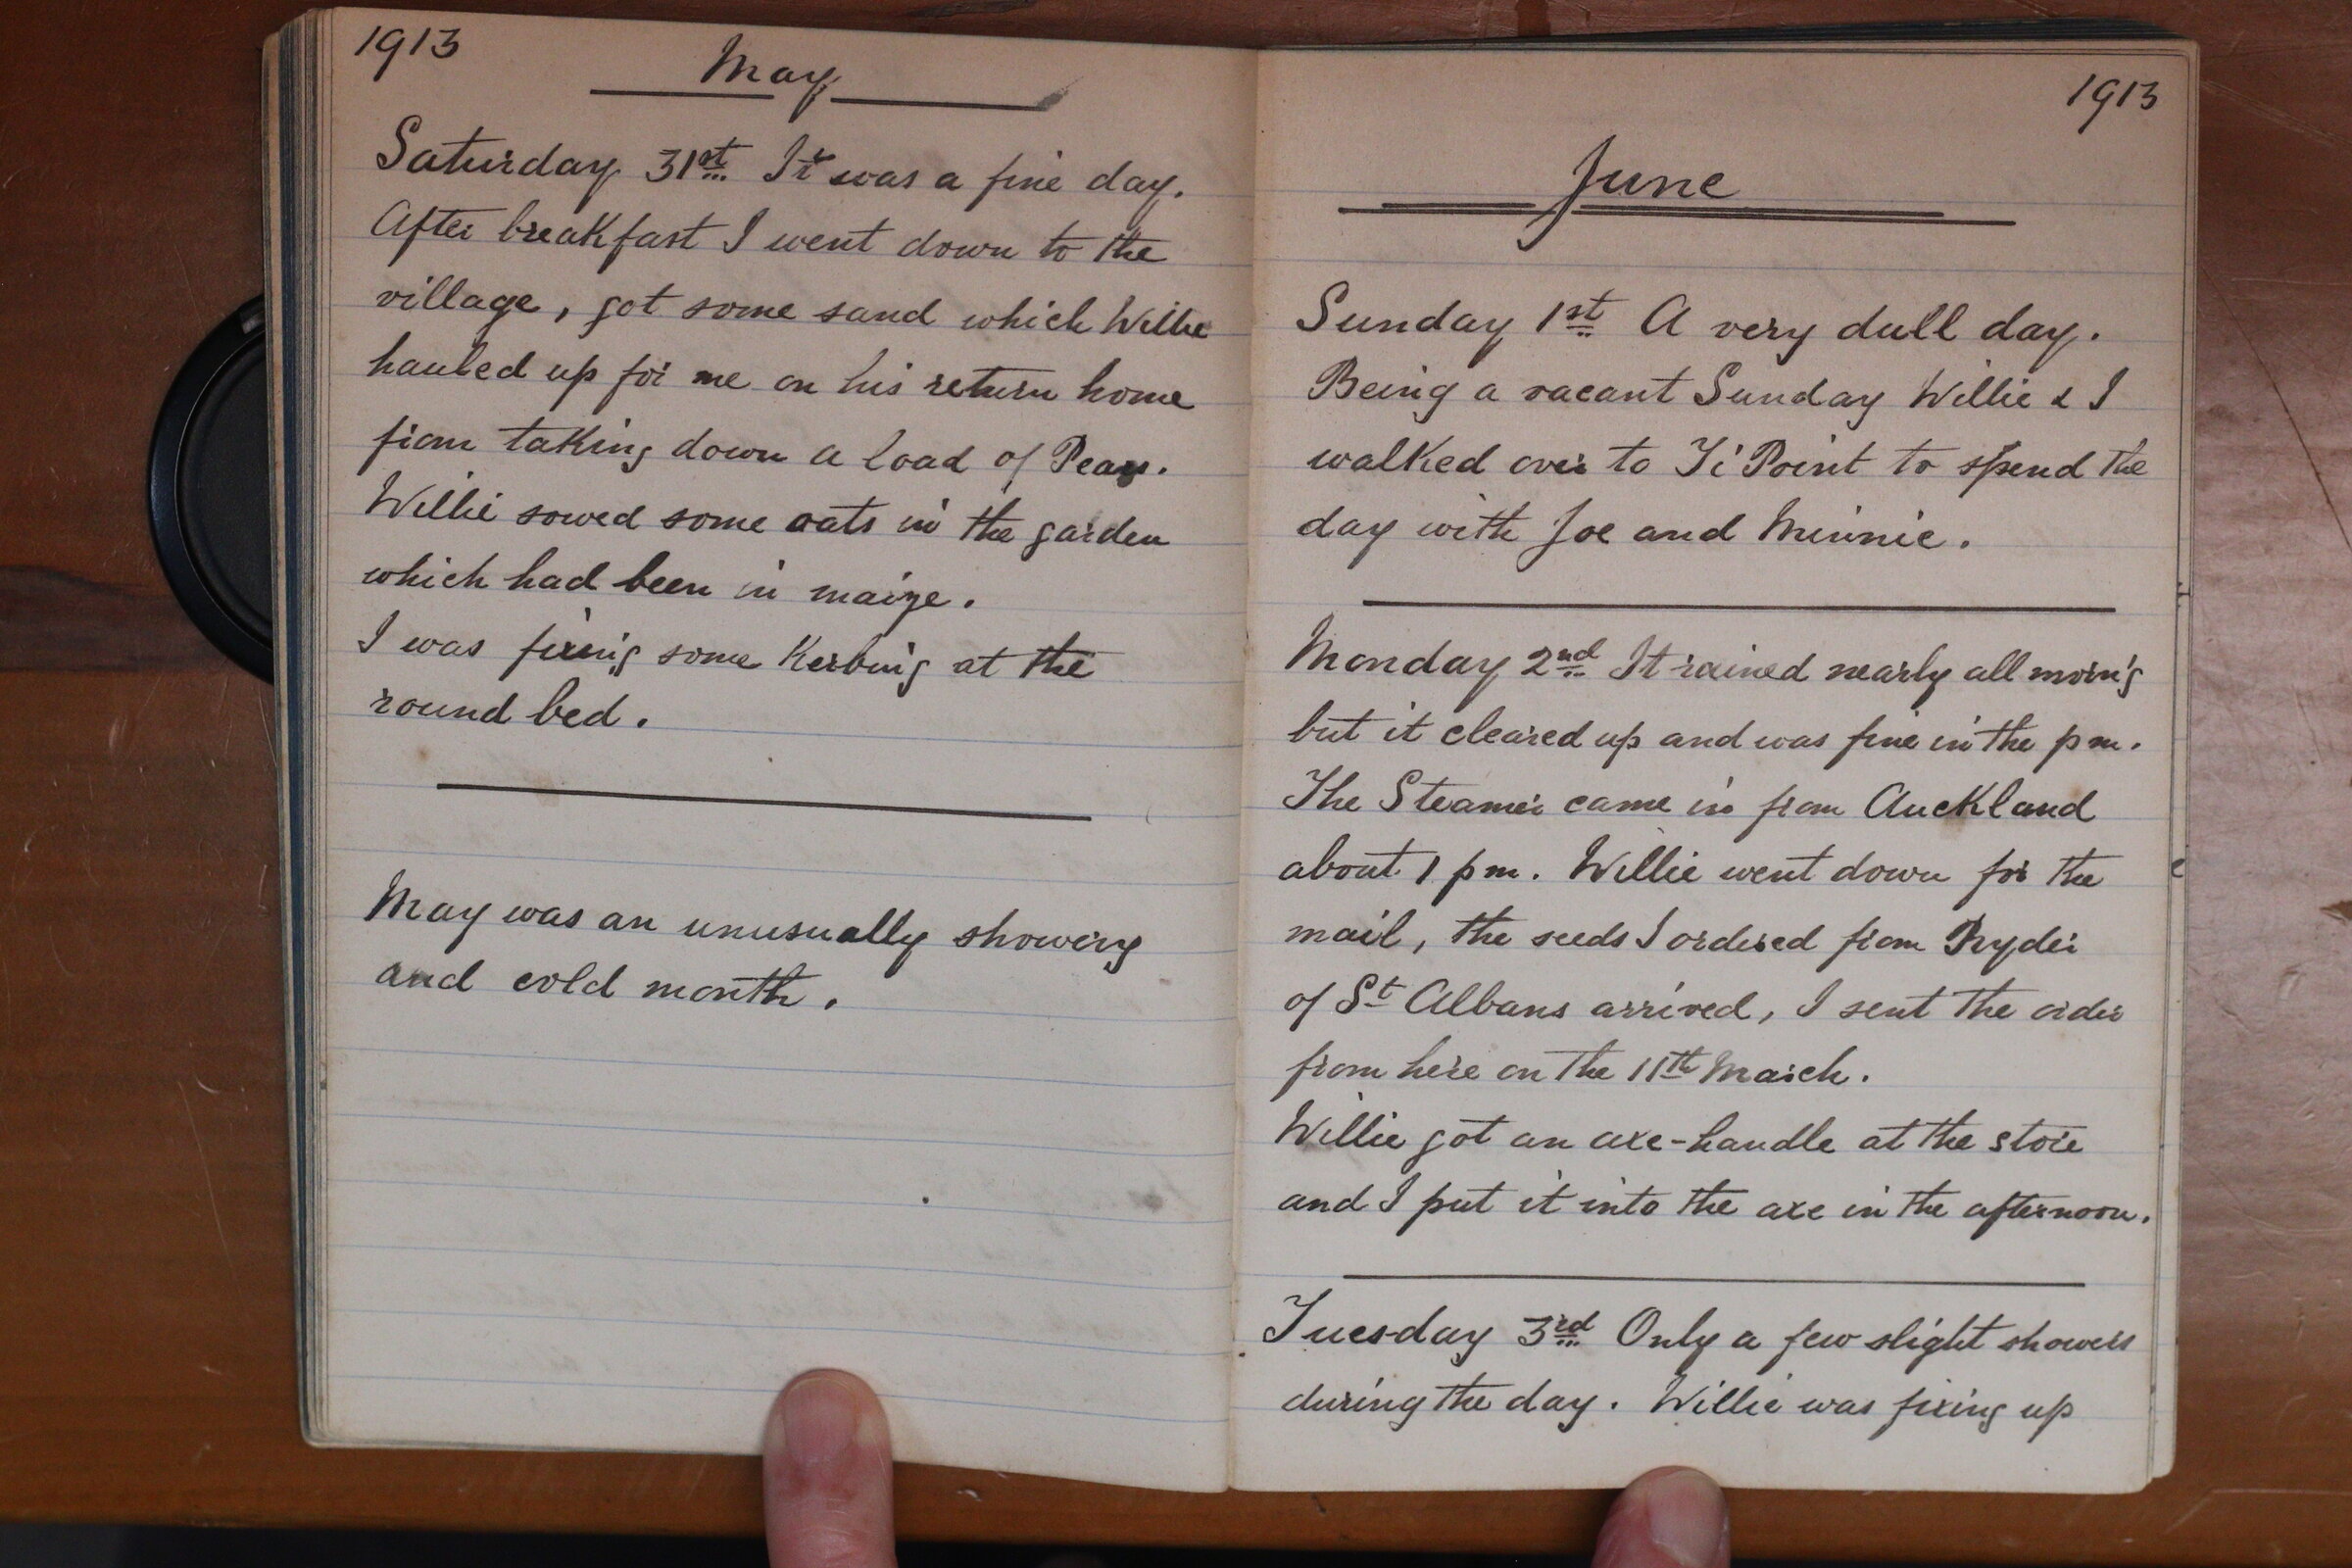 1913
May
Saturday 31st It was a fine day.
After breakfast I went down to the
village, got some sand which Willie
hauled up for me on his return home
from taking down a load of Pears.
Willie sowed some oats in the garden
which had been in maize.
I was fixing some Kerbing at the
round bed.
May was an unusually showery
and cold month.
1913
June
Sunday 1st A very dull day.
Being a vacant Sunday Willie & I
walked over to Ti Point to spend the
day with Joe and Minnie.
Monday 2nd It rained nearly all morn'g
but it cleared up and was fine in the pm.
The Steamer came in from Auckland
about 1 pm. Willie went down for the
mail, the seeds I ordered from Ryder
of St Albans arrived, I sent the order
from here on the 11th March.
Willie got an axe-handle at the store
and I put it into the axe in the afternoon.
Tuesday 3rd Only a few slight showers
during the day. Willie was fixing up